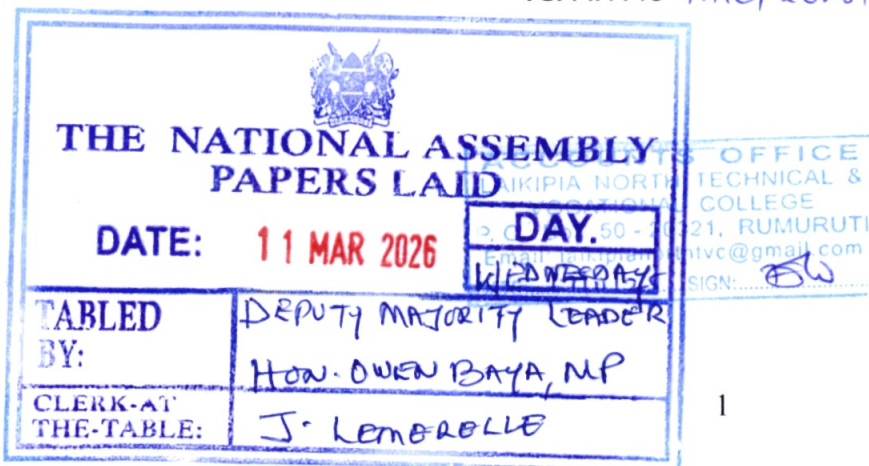 THE NATIONAL ASSEMBLY
PAPERS LAID
DATE: 11 MAR 2026
DAY.
WEDNESDAY
TABLED BY:
DEPUTY MAJORITY LEADER
HON. OWEN BAYA, MP
CLERK-AT THE-TABLE:
J. LEMERELLE
ACCOUNTS OFFICE
LAIKIPIA NORTH TECHNICAL &
VOCATIONAL COLLEGE
50 - 20321, RUMURUTI
Email:
@gmail.com
SIGN:
1